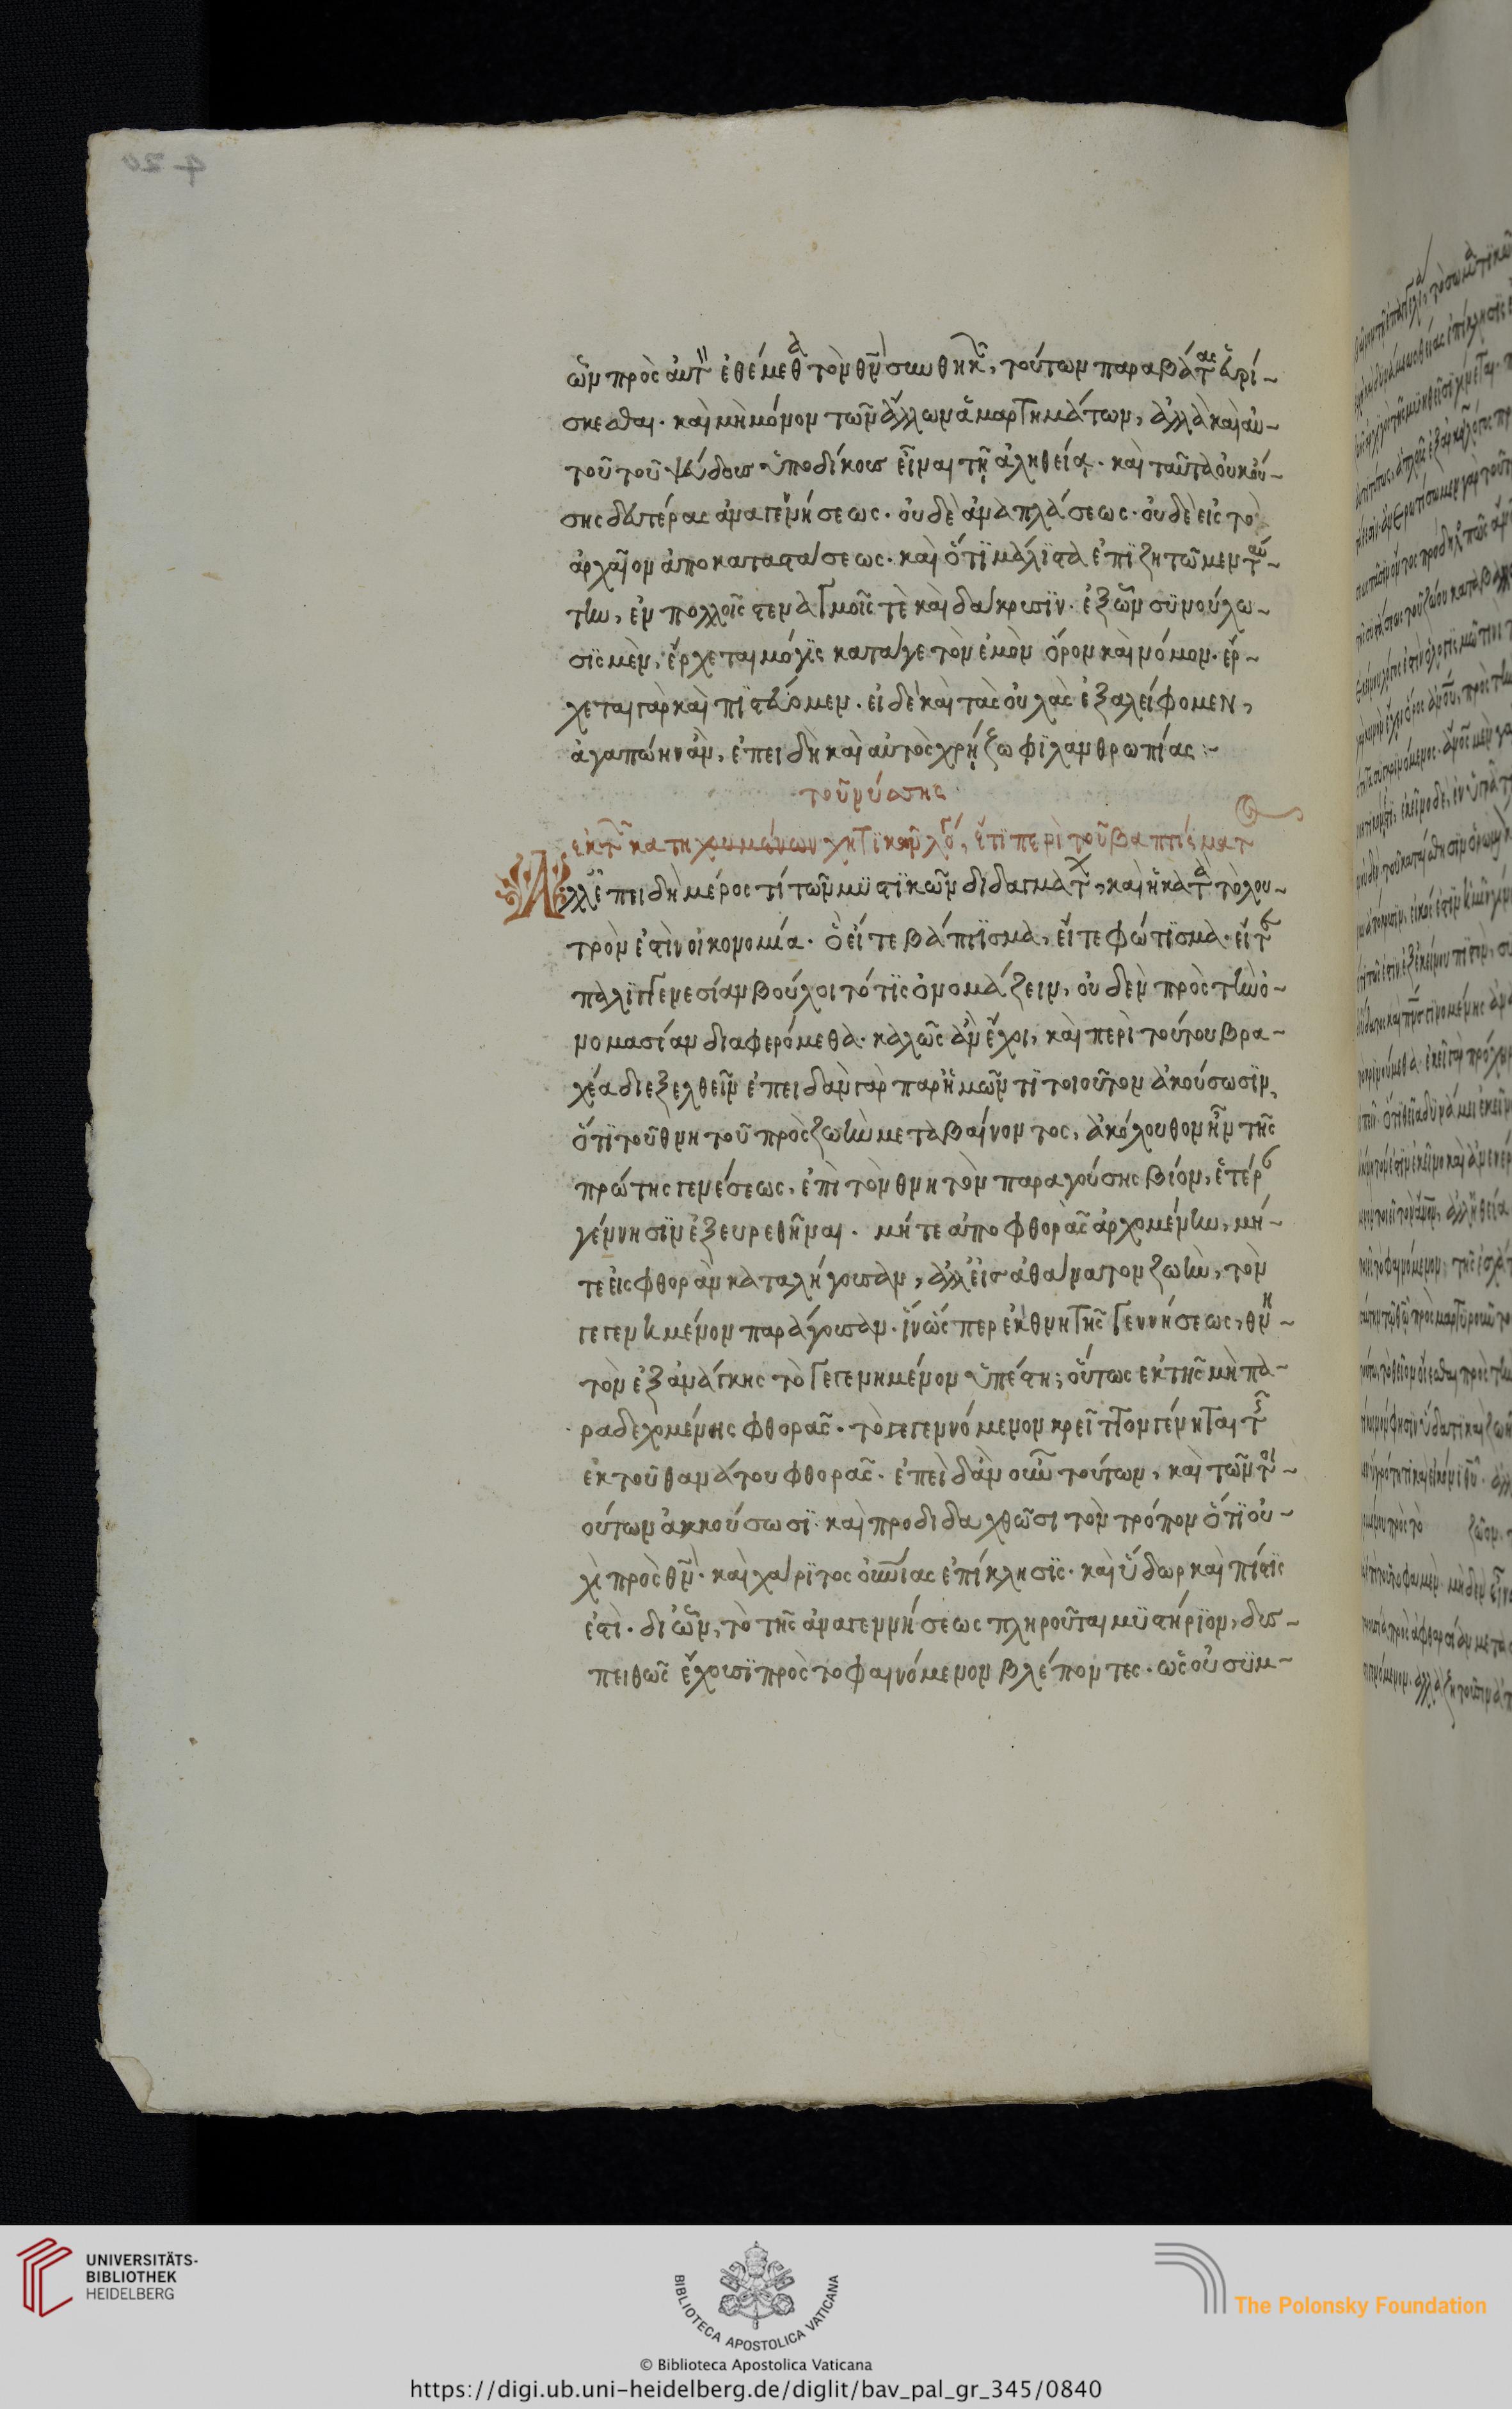 420
ὧν πρὸς αὐτ ἐθέμεθα τὸν θν συνθηκ, τούτων παραβάτας εὑρί-
σκεσθαι. καὶ μὴ μόνον τῶν ἄλλων ἁμαρτημάτων, ἀλλὰ καὶ αὐ-
τοῦ τοῦ ψεύδους ὑποδίκους εἶναι τῇ ἀληθείᾳ. καὶ ταῦτα οὐκ οὔ-
σης δευτέρας ἀναγεννήσεως. οὐδὲ ἀναπλάσεως. οὐδὲ εἰς τὸ
ἀρχαῖον ἀποκαταστάσεως. καὶ ὅτι μάλιστα ἐπιζητῶμεν ταύ-
την, ἐν πολλοῖς στεναγμοῖς τὲ καὶ δάκρυσιν. ἐξ ὧν συνούλω-
σις μὲν, ἔρχεται μόγις κατά γε τὸν ἐμὸν ὅρον καὶ νόμον. ἔρ-
χεται γὰρ καὶ πιστεύομεν. εἰ δὲ καὶ τὰς οὐλὰς ἐξαλείφομεν,
ἀγαπῴην ἂν, ἐπειδὴ καὶ αὐτὸς χρῄζω φιλανθρωπίας :-
τοῦ νύσης
ἐκ τ κατηχουμένων χητικῶν λό, ἔτι περὶ τοῦ βαπτίσματ
Ἀλλ' ἐπειδὴ μέρος τί τῶν μυστικῶν διδαγμάτ, καὶ ἡ κατὰ τὸ λου-
τρὸν ἐστὶν οἰκονομία. ὃ εἴτε βάπτισμα, εἴτε φώτισμα. εἴτε
παλιγγενεσίαν βούλοιτό τις ὀνομάζειν, οὐδὲν πρὸς τὴν ὀ-
νομασίαν διαφερόμεθα. καλῶς ἂν ἔχοι, καὶ περὶ τούτου βρα-
χέα διεξελθεῖν ἐπειδὰν γὰρ παρ' ἡμῶν τὶ τοιοῦτον ἀκούσωσιν,
ὅτι τοῦ θνητοῦ πρὸς ζωὴν μεταβαίνοντος, ἀκόλουθον ἦν τῆς
πρώτης γενέσεως, ἐπὶ τὸν θνητὸν παραγούσης βίον, ἑτέρ
γέννησιν ἐξευρεθῆναι. μήτε ἀπο φθορᾶς ἀρχομένην, μή-
τε εἰς φθορὰν καταλήγουσαν, ἀλλ' εἰσ ἀθάνατον ζωὴν, τὸν
γεγεννημένον παράγουσαν. ἵν' ὥς περ ἐκ θνητῆς γεννήσεως, θνη-
τὸν ἐξ ἀνάγκης τὸ γεγεννημένον ὑπέστη; οὕτως εκ τῆς μὴ πα-
ραδεχομένης φθορᾶς. τὸ γεγεννόμενον κρεῖττον γένηται τῆς
ἐκ τοῦ θανάτου φθορᾶς. ἐπειδὰν οὖν τούτων, καὶ τῶν τοι-
ούτων ἀκκούσωσι. καὶ προδιδαχθῶσι τὸν τρόπον ὅτι οὐ-
χὶ πρὸς θν. καὶ χάριτος οὐνίας ἐπίκλησις. καὶ ὕδωρ καὶ πίστις
ἐστὶ. δι' ὧν, τὸ τῆς ἀναγεννήσεως πληροῦται μυστήριον, δυσ-
πειθῶς ἔχουσι πρὸς το φαινόμενον βλέποντες. ὡς οὐ συν-
UNIVERSITÄTS-
BIBLIOTHEK
HEIDELBERG
BIBLIOTECA APOSTOLICA VATICANA
The Polonsky Foundation
© Biblioteca Apostolica Vaticana
https://digi.ub.uni-heidelberg.de/diglit/bav_pal_gr_345/0840